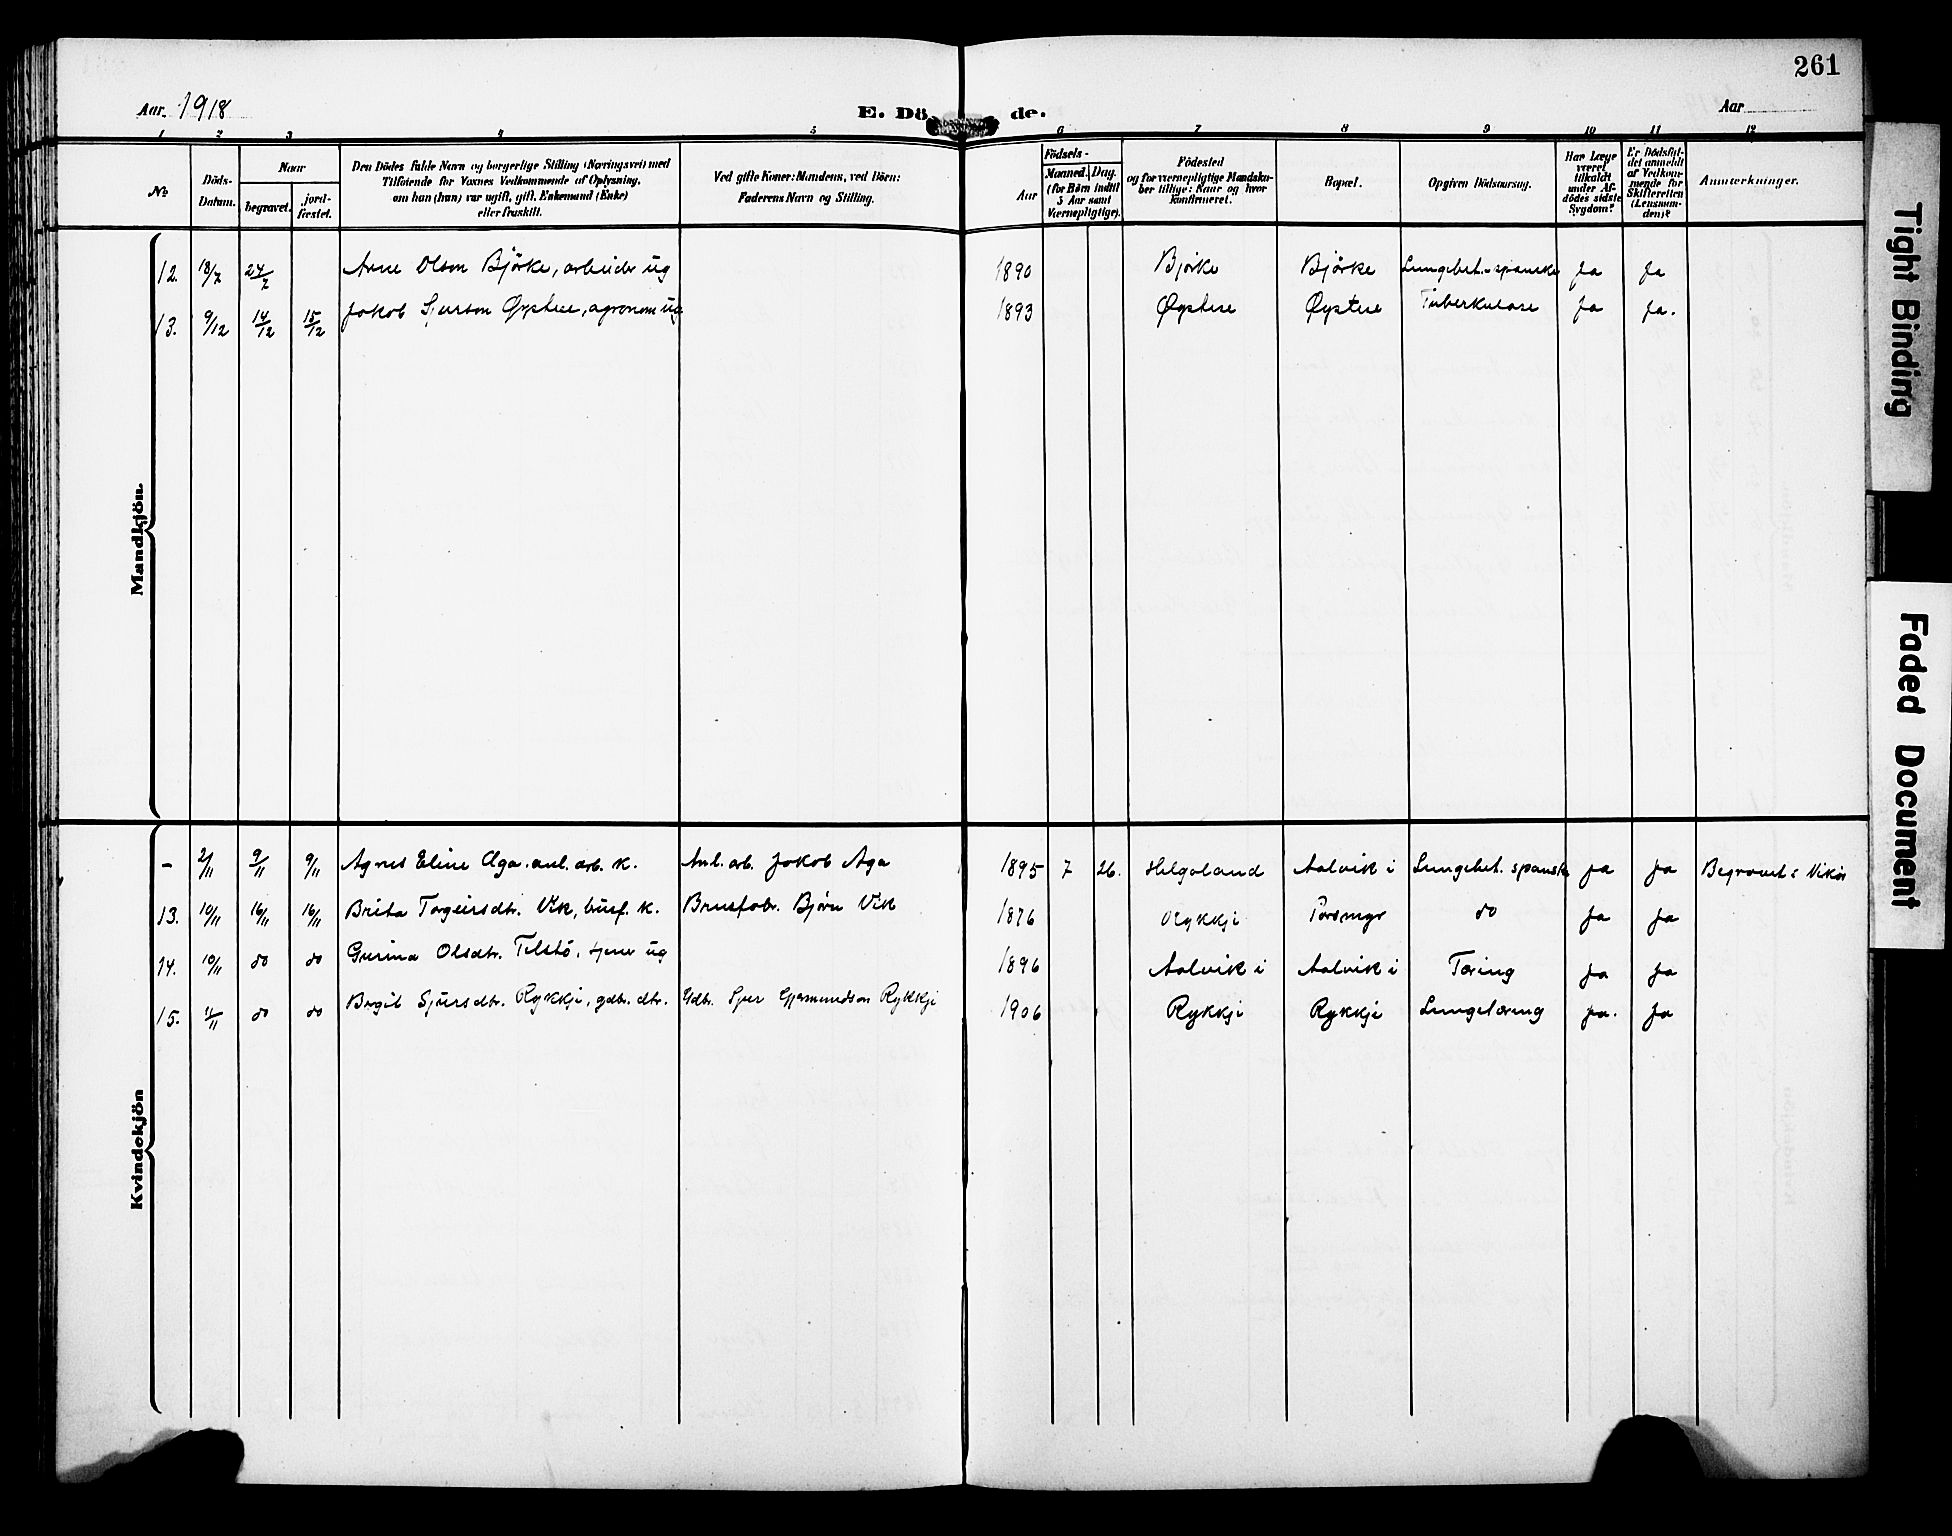 261
Aar. 1918 E. Dö de. Aar
1 2 3 4 5 6 7 8 9 10 11 12
No Döds-Datum. Naar begravet. jord-fæstet. Den Dödes fulde Navn og borgerlige Stilling (Næringsvei) med Tilföiende for Voxnes Vedkommende af Oplysning, om han (hun) var ugift, gift, Enkemand (Enke) eller fraskilt. Ved gifte Koner: Mandens, ved Börn: Faderens Navn og Stilling. Födsels- Aar Maaned. Dag. (for Börn indtil 5 Aar samt Værnepligtige). Födested og for værnepligtige Mandskaber tillige: Naar og hvor konfirmeret. Bopæl. Opgiven Dödsaarsag. Har Læge været tilkaldt under Afdödes sidste Sygdom? Er Dödsfaldet anmeldt af Vedkommende for Skifteretten (Lensmanden)? Anmærkninger.
Mandkjön.
12. 18/7 24/7 Arne Olson Björke, arbeider ug 1890 Bjørke Bjørke Lungebet. spanske Ja Ja
13. 9/12 14/12 15/12 Jakob Sjurson Øystese, agronom ug 1893 Øystese Øystese Tuberkulose Ja Ja.
Kvindekjön
– 2/11 9/11 9/11 Agnes Eline Aga. anl. arb. k. Anl. arb. Jakob Aga 1895 7 26. Helgoland Aalvik i Lungebet. spanske Ja Ja Begravet i Vikör
13. 10/11 16/11 16/11 Brita Torgeirsdtr. Vik, husf. k. Björn Vik 1876 Rykkji do Ja Ja
14. 10/11 do do Gurina Olsdtr. tjener ug 1896 Aalvik i Aalvik i Tæring Ja Ja
15. 11/11 do do Brgit Sjursdtr. Rykkji, gdbr. dtr. Gdbr. Sjur Gjermundson Rykkji 1906 Rykkji Rykkje Lungetæring Ja. Ja
Tight Binding
Faded Document